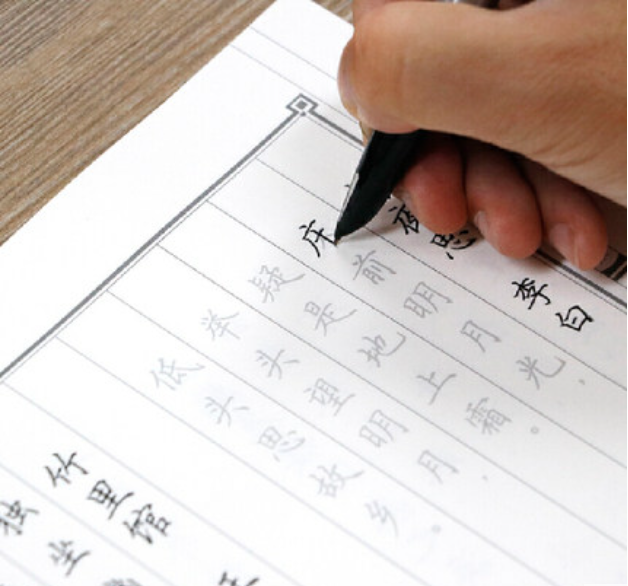 夜思 李白
床前明月光，
疑是地上霜。
举头望明月，
低头思故乡。
竹里馆
独坐